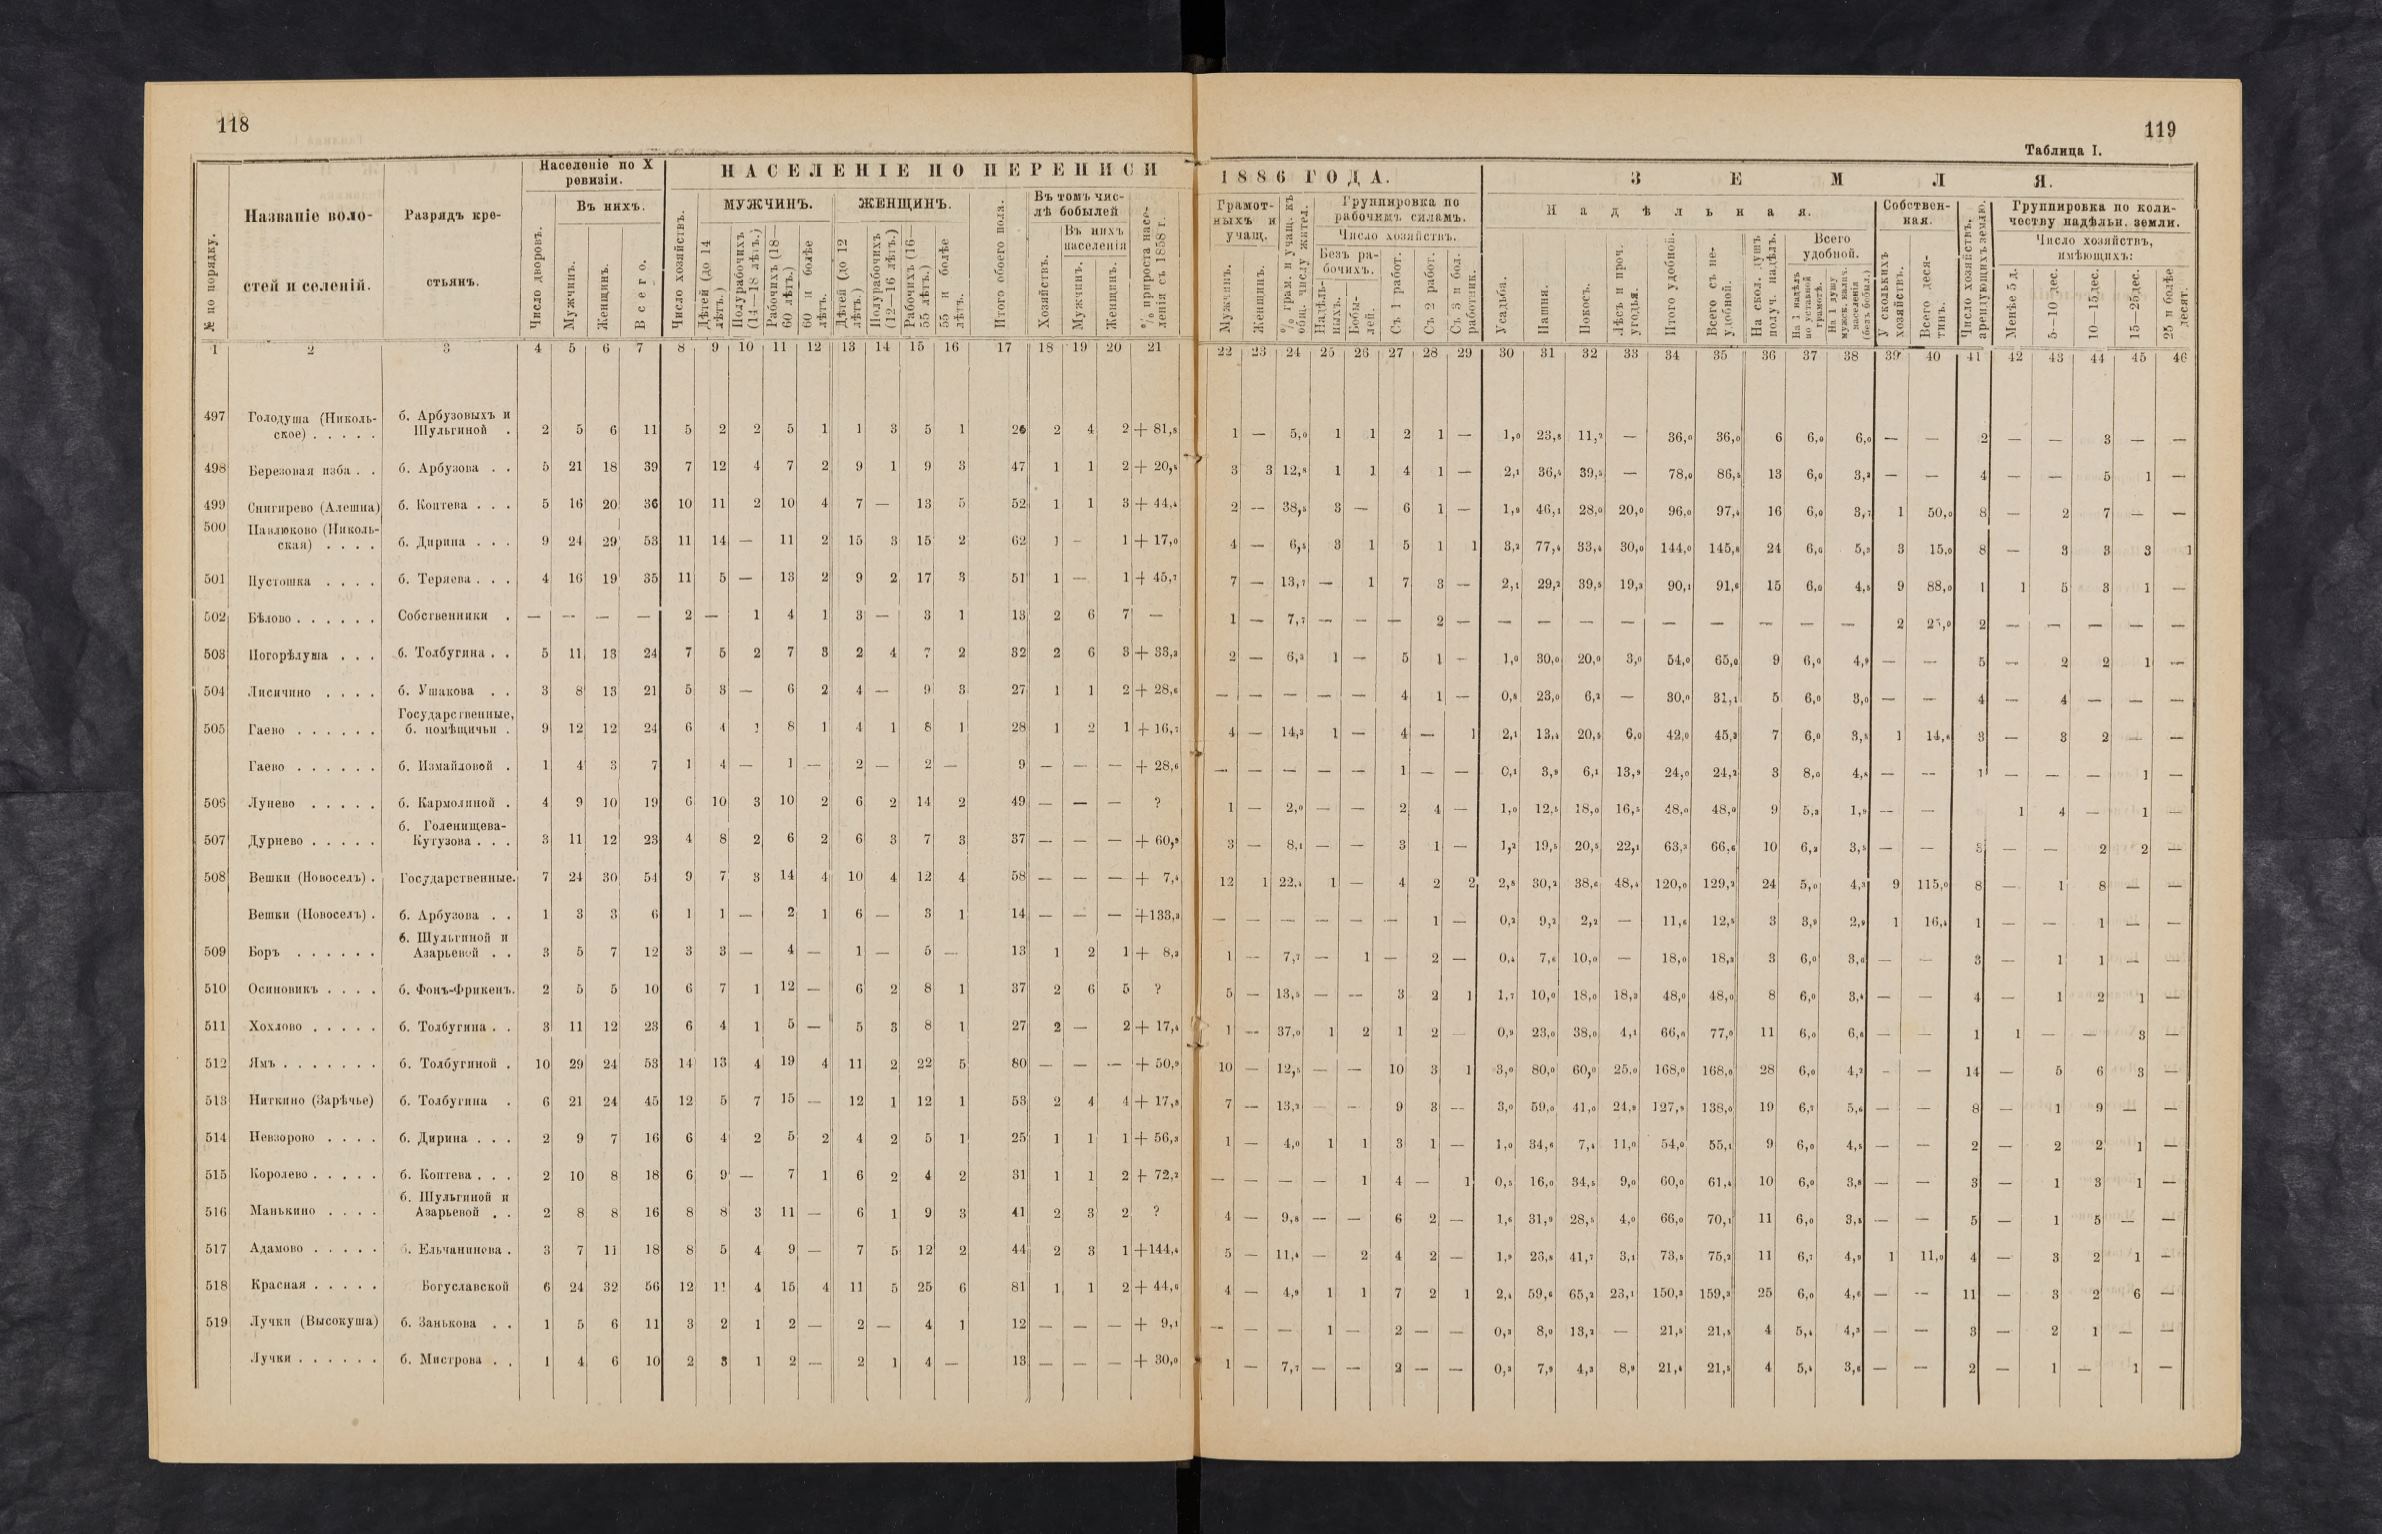 118
119
Таблица I.
НАСЕЛЕНІЕ ПО ПЕРЕПИСИ 1886 ГОДА.
ЗЕМЛЯ.
№ по порядку.
Названіе волостей и селеній.
Разрядъ крестьянъ.
Населеніе по X ревизіи.
Число дворовъ.
Въ нихъ.
Мужчинъ.
Женщинъ.
Всего.
Число хозяйствъ.
МУЖЧИНЪ.
Дѣтей (до 14 лѣтъ.)
Полурабочихъ (14—18 лѣтъ.)
Рабочихъ (18—60 лѣтъ.)
60 и болѣе лѣтъ.
ЖЕНЩИНЪ.
Дѣтей (до 12 лѣтъ.)
Полурабочихъ (12—16 лѣтъ.)
Рабочихъ (16—55 лѣтъ.)
55 и болѣе лѣтъ.
Итого обоего пола.
Въ томъ числѣ бобылей
Хозяйствъ.
Въ нихъ населенія
Мужчинъ.
Женщинъ.
% прироста населенія съ 1858 г.
Грамотныхъ и учащ.
Мужчинъ.
Женщинъ.
% грам. и учащ. къ общ. числу жител.
Группировка по рабочимъ силамъ.
Число хозяйствъ.
Безъ рабочихъ.
Надѣльныхъ.
Бобылей.
Съ 1 работ.
Съ 2 работ.
Съ 3 и бол. работник.
Надѣльная.
Усадьба.
Пашня.
Покосъ.
Лѣсъ и проч. угодья.
Итого удобной.
Всего съ неудобной.
На скол. душъ получ. надѣлъ.
Всего удобной.
На 1 надѣлъ по уставной грамотѣ.
На 1 душу мужск. налич. населенія (безъ бобыл.)
Собственная.
У сколькихъ хозяйствъ.
Всего десятинъ.
Число хозяйствъ, арендующихъ землю.
Группировка по количеству надѣльн. земли.
Число хозяйствъ, имѣющихъ:
Менѣе 5 д.
5—10 дес.
10—15 дес.
15—25 дес.
25 и болѣе десят.
1 2 3 4 5 6 7 8 9 10 11 12 13 14 15 16 17 18 19 20 21 22 23 24 25 26 27 28 29 30 31 32 33 34 35 36 37 38 39 40 41 42 43 44 45 46
497 Голодуша (Никольское) . . . . . б. Арбузовыхъ и Шульгиной . 2 5 6 11 5 2 2 5 1 1 3 5 1 26 2 4 2 + 81,8 1 — 5,0 1 1 2 1 — 1,0 23,8 11,2 — 36,0 36,0 6 6,0 6,0 — — 2 — — 3 — —
498 Березовая изба . . б. Арбузова . . 5 21 18 39 7 12 4 7 2 9 1 9 3 47 1 1 2 + 20,5 3 3 12,8 1 1 4 1 — 2,1 36,4 39,5 — 78,0 86,5 13 6,0 3,2 — — 4 — — 5 1 —
499 Снигирево (Алешна) б. Коптева . . . 5 16 20 36 10 11 2 10 4 7 — 13 5 52 1 1 3 + 44,4 2 — 38,5 3 — 6 1 — 1,9 46,1 28,0 20,0 96,0 97,4 16 6,0 3,7 1 50,0 8 — 2 7 — —
500 Павлюково (Никольская) . . . . б. Дирина . . . 9 24 29 53 11 14 — 11 2 15 3 15 2 62 1 - 1 + 17,0 4 — 6,5 3 1 5 1 1 3,2 77,4 33,4 30,0 144,0 145,8 24 6,0 5,3 3 15,0 8 — 3 3 3 1
501 Пустошка . . . . б. Теряева . . . 4 16 19 35 11 5 — 13 2 9 2 17 3 51 1 — 1 + 45,7 7 — 13,7 — 1 7 3 — 2,1 29,2 39,5 19,3 90,1 91,6 15 6,0 4,5 9 88,0 1 1 5 3 1 —
502 Бѣлово . . . . . . Собственники . — — — — 2 — 1 4 1 3 — 3 1 13 2 6 7 — 1 — 7,7 — — — 2 — — — — — — — — — — 2 25,0 2 — — — — —
503 Погорѣлуша . . . б. Толбугина . . 5 11 13 24 7 5 2 7 3 2 4 7 2 32 2 6 3 + 33,3 2 — 6,3 1 — 5 1 - 1,0 30,0 20,0 3,0 54,0 65,0 9 6,0 4,9 — — 5 — 2 2 1 —
504 Лисичино . . . . б. Ушакова . . 3 8 13 21 5 3 — 6 2 4 — 9 3 27 1 1 2 + 28,6 — — — — — 4 1 — 0,8 23,0 6,2 — 30,0 31,1 5 6,0 3,0 — — 4 — 4 — — —
505 Гаево . . . . . . Государственные, б. помѣщичьи . 9 12 12 24 6 4 1 8 1 4 1 8 1 28 1 2 1 + 16,7 4 — 14,3 1 — 4 — 1 2,1 13,4 20,5 6,0 42,0 45,3 7 6,0 3,5 1 14,6 3 — 3 2 — —
Гаево . . . . . . б. Измайловой . 1 4 3 7 1 4 — 1 — 2 — 2 — 9 — — — + 28,6 — — — — — 1 — — 0,1 3,9 6,1 13,9 24,0 24,2 3 8,0 4,8 — — 1 — — — 1 —
506 Лунево . . . . . б. Кармолиной . 4 9 10 19 6 10 3 10 2 6 2 14 2 49 — — — ? 1 — 2,0 — — 2 4 — 1,0 12,5 18,0 16,5 48,0 48,0 9 5,3 1,9 — — 1 4 — 1 —
507 Дурнево . . . . . б. Голенищева-Кутузова . . . 3 11 12 23 4 8 2 6 2 6 3 7 3 37 — — — + 60,9 3 — 8,1 — — 3 1 — 1,2 19,5 20,5 22,1 63,3 66,6 10 6,3 3,5 — — 3 — — 2 2 —
508 Вешки (Новоселъ) . Государственные. 7 24 30 54 9 7 3 14 4 10 4 12 4 58 — — — + 7,4 12 1 22,4 1 — 4 2 2 2,8 30,2 38,6 48,4 120,0 129,2 24 5,0 4,3 9 115,0 8 — 1 8 — —
Вешки (Новоселъ) . б. Арбузова . . 1 3 3 6 1 1 — 2 1 6 — 3 1 14 — — — +133,3 — — — — — — 1 — 0,2 9,2 2,2 — 11,6 12,5 3 3,9 2,9 1 16,4 1 — — 1 — —
509 Боръ . . . . . . б. Шульгиной и Азарьевой . . 3 5 7 12 3 3 — 4 — 1 — 5 — 13 1 2 1 + 8,3 1 — 7,7 — 1 — 2 — 0,4 7,6 10,0 — 18,0 18,3 3 6,0 3,6 — — 3 — 1 1 — —
510 Осиновикъ . . . . б. Фонъ-Фрикенъ. 2 5 5 10 6 7 1 12 — 6 2 8 1 37 2 6 5 ? 5 — 13,5 — — 3 2 1 1,7 10,0 18,0 18,3 48,0 48,0 8 6,0 3,4 — — 4 — 1 2 1 —
511 Хохлово . . . . . б. Толбугина . . 3 11 12 23 6 4 1 5 — 5 3 8 1 27 2 — 2 + 17,4 1 — 37,0 1 2 1 2 — 0,9 23,0 38,0 4,1 66,0 77,0 11 6,0 6,6 — — 1 1 — — 3 —
512 Ямъ . . . . . . . б. Толбугиной . 10 29 24 53 14 13 4 19 4 11 2 22 5 80 — — — + 50,9 10 — 12,5 — — 10 3 1 3,0 80,0 60,0 25,0 168,0 168,0 28 6,0 4,2 - — 14 — 5 6 3 —
513 Ниткино (Зарѣчье) б. Толбугина . 6 21 24 45 12 5 7 15 — 12 1 12 1 53 2 4 4 + 17,8 7 — 13,2 — - 9 3 — 3,0 59,0 41,0 24,9 127,9 138,0 19 6,7 5,6 — — 8 — 1 9 — —
514 Невзорово . . . . б. Дирина . . . 2 9 7 16 6 4 2 5 2 4 2 5 1 25 1 1 1 + 56,3 1 — 4,0 1 1 3 1 — 1,0 34,6 7,4 11,0 54,0 55,1 9 6,0 4,5 — — 2 — 2 2 1 —
515 Королево . . . . . б. Коптева . . . 2 10 8 18 6 9 — 7 1 6 2 4 2 31 1 1 2 + 72,2 — — — — 1 4 — 1 0,5 16,0 34,5 9,0 60,0 61,4 10 6,0 3,8 — — 3 — 1 3 1 —
516 Манькино . . . . б. Шульгиной и Азарьевой . . 2 8 8 16 8 8 3 11 — 6 1 9 3 41 2 3 2 ? 4 — 9,8 — — 6 2 — 1,6 31,9 28,5 4,0 66,0 70,1 11 6,0 3,5 — — 5 — 1 5 — —
517 Адамово . . . . . б. Ельчанинова . 3 7 11 18 8 5 4 9 — 7 5 12 2 44 2 3 1 +144,4 5 — 11,4 — 2 4 2 — 1,9 23,8 41,7 3,1 73,5 75,2 11 6,7 4,9 1 11,0 4 — 3 2 1 —
518 Красная . . . . . Богуславской 6 24 32 56 12 11 4 15 4 11 5 25 6 81 1 1 2 + 44,6 4 — 4,9 1 1 7 2 1 2,4 59,6 65,2 23,1 150,3 159,3 25 6,0 4,6 — — 11 — 3 2 6 —
519 Лучки (Высокуша) б. Занькова . . 1 5 6 11 3 2 1 2 — 2 — 4 1 12 — — — + 9,1 — — — 1 — 2 — — 0,3 8,0 13,2 — 21,5 21,5 4 5,4 4,3 — — 3 — 2 1 — —
Лучки . . . . . . б. Мистрова . . 1 4 6 10 2 3 1 2 — 2 1 4 — 13 — — — + 30,0 1 — 7,7 — — 2 — — 0,3 7,9 4,3 8,9 21,4 21,5 4 5,4 3,6 — — 2 — 1 — 1 —